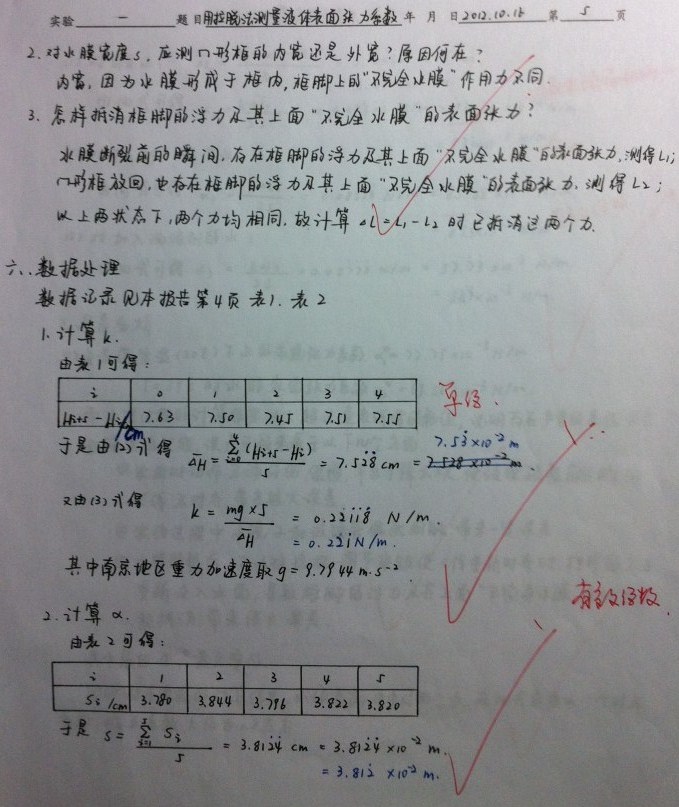 实验 一 题目 用拉脱法测量液体表面张力系数 年 月 日 2012.10.16 第 5 页
2. 对水膜宽度s, 应测∩形框的内宽还是外宽？原因何在？
内宽, 因为水膜形成于框内, 框脚上的“不完全水膜”作用力不同.
3. 怎样抵消框脚的浮力及其上面“不完全水膜”的表面张力？
水膜断裂前的瞬间, 存在框脚的浮力及其上面“不完全水膜”的表面张力, 测得L₁;
∩形框放回, 也存在框脚的浮力及其上面“不完全水膜”的表面张力, 测得L₂;
以上两状态下, 两个力均相同, 故计算 ΔL=L₁-L₂ 时已抵消这两个力.
六. 数据处理
数据记录见本报告第4页 表1. 表2
1. 计算k.
由表1可得:
i 0 1 2 3 4
单位.
Hi+5 - Hi /cm 7.63 7.50 7.45 7.51 7.55
7.53×10⁻² m
于是由(2)式得 ΔH = Σ(Hi+5-Hi) / 5 = 7.528 cm = 7.528×10⁻² m.
又由(3)式得 k = mg×5 / ΔH = 0.22118 N/m.
= 0.221 N/m.
其中南京地区重力加速度取 g=9.7944 m·s⁻².
有效位数.
2. 计算 α.
由表2可得:
i 1 2 3 4 5
Si /cm 3.780 3.844 3.796 3.822 3.820
于是 S = Σ Si / 5 = 3.8124 cm = 3.8124 ×10⁻² m.
= 3.812 ×10⁻² m.